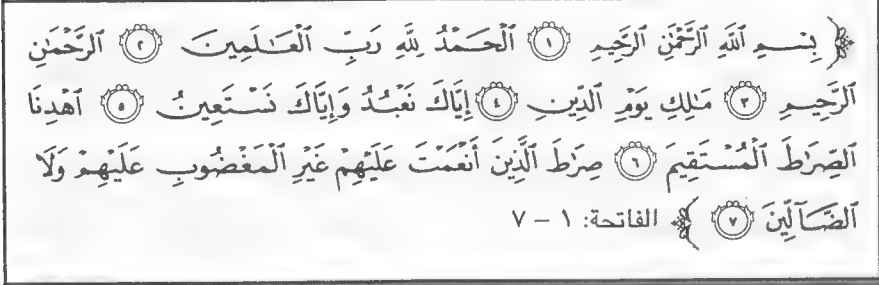 ﴿ بِسْمِ ٱللَّهِ ٱلرَّحْمَٰنِ ٱلرَّحِيمِ ۝١ ٱلْحَمْدُ لِلَّهِ رَبِّ ٱلْعَٰلَمِينَ ۝٢ ٱلرَّحْمَٰنِ
ٱلرَّحِيمِ ۝٣ مَٰلِكِ يَوْمِ ٱلدِّينِ ۝٤ إِيَّاكَ نَعْبُدُ وَإِيَّاكَ نَسْتَعِينُ ۝٥ ٱهْدِنَا
ٱلصِّرَٰطَ ٱلْمُسْتَقِيمَ ۝٦ صِرَٰطَ ٱلَّذِينَ أَنْعَمْتَ عَلَيْهِمْ غَيْرِ ٱلْمَغْضُوبِ عَلَيْهِمْ وَلَا
ٱلضَّآلِّينَ ۝٧ ﴾ الفاتحة: ١ – ٧